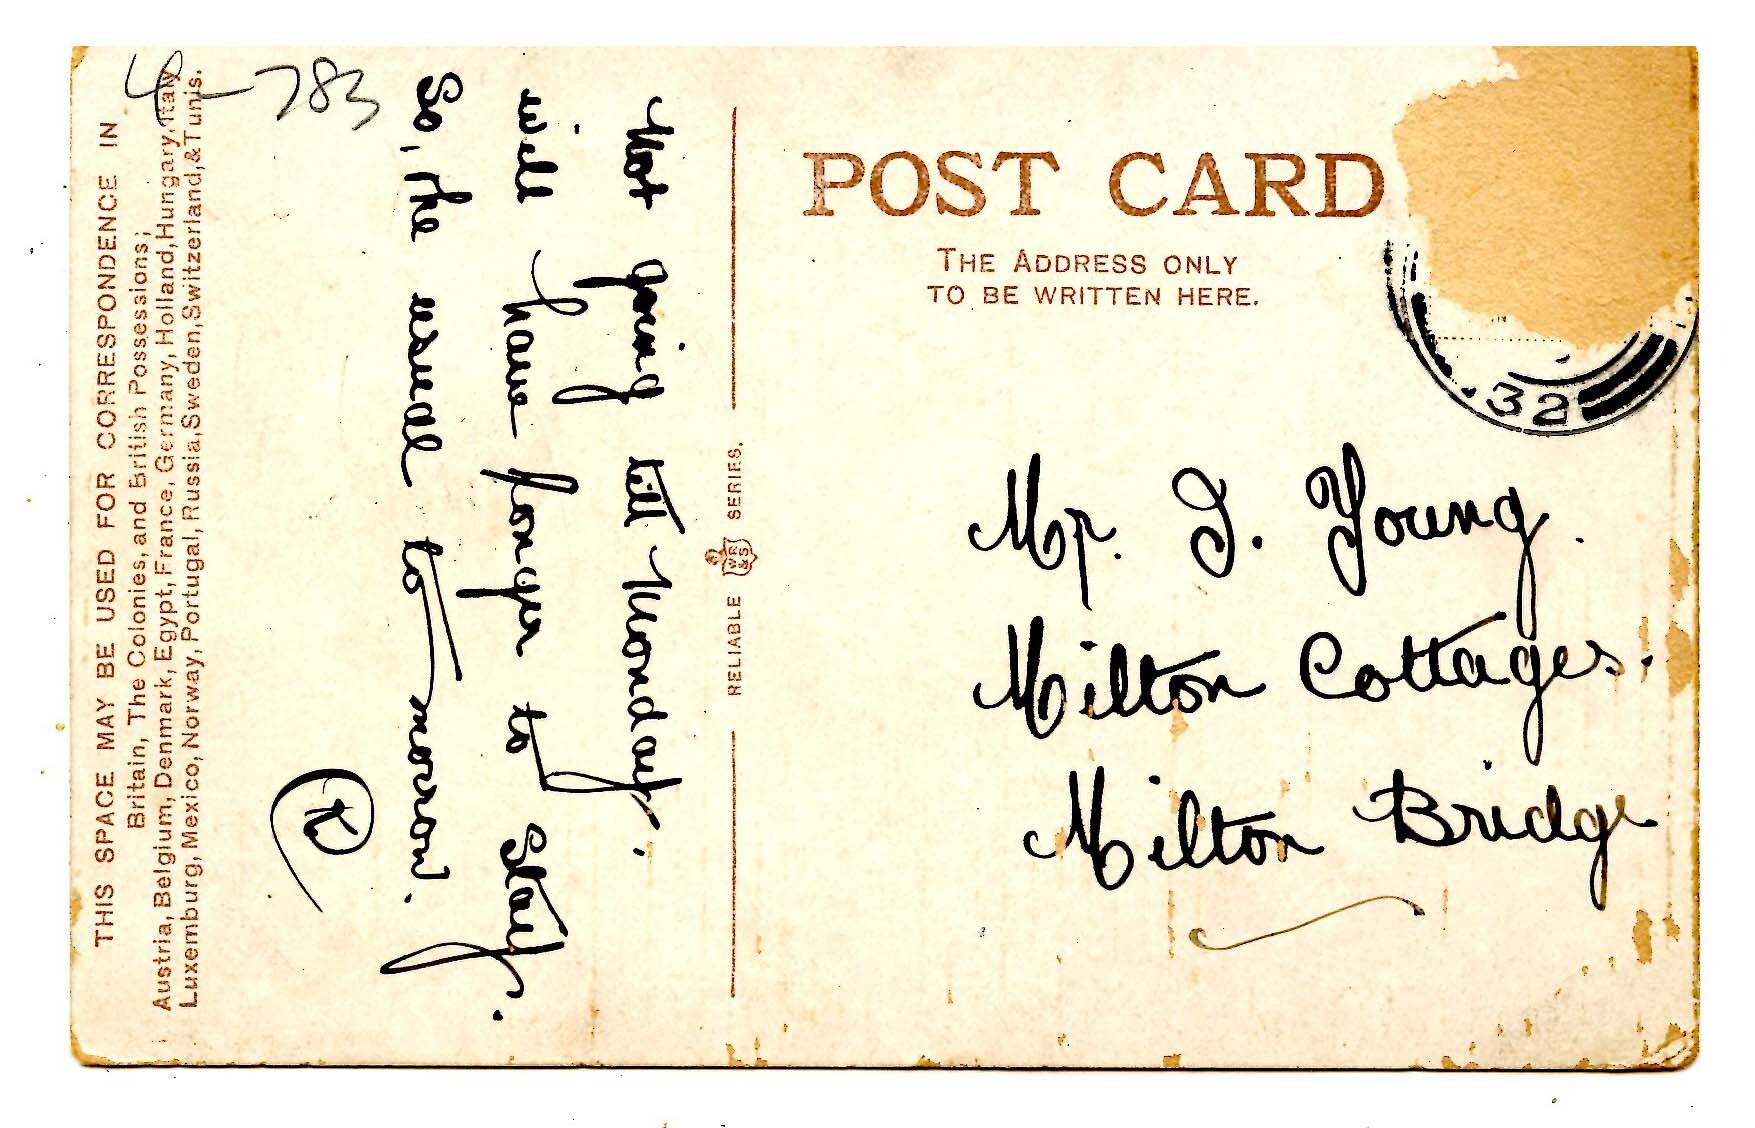 4-783
THIS SPACE MAY BE USED FOR CORRESPONDENCE IN
Britain, The Colonies, and British Possessions;
Austria, Belgium, Denmark, Egypt, France, Germany, Holland, Hungary, Italy
Luxemburg, Mexico, Norway, Portugal, Russia, Sweden, Switzerland, & Tunis.
Not going till Monday.
will have longer to stay.
So, the usual to-morrow.
RELIABLE WR&S SERIES.
POST CARD
THE ADDRESS ONLY
TO BE WRITTEN HERE.
32
Mr. J. Young.
Milton Cottages.
Milton Bridge